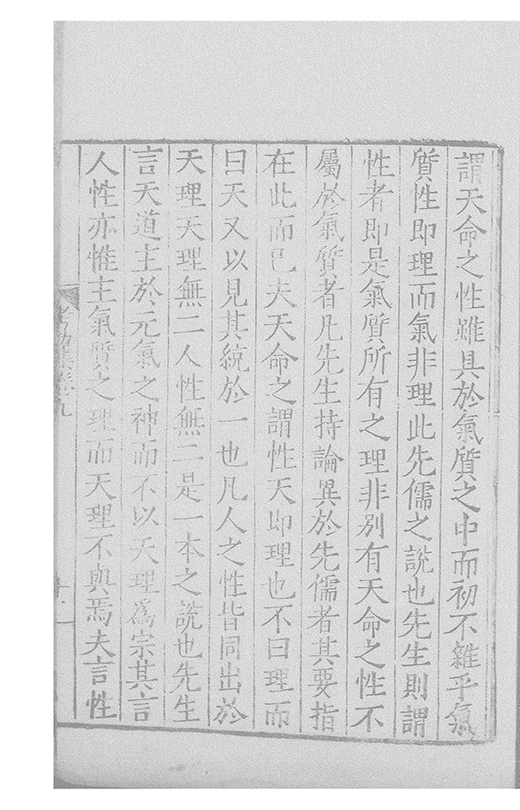 謂天命之性雖具於氣質之中而初不雜乎氣
質性即理而氣非理此先儒之說也先生則謂
性者即是氣質所有之理非別有天命之性不
屬於氣質者凡先生持論異於先儒者其要指
在此而已夫天命之謂性天即理也不曰理而
曰天又以見其統於一也凡人之性皆同出於
天理天理無二人性無二是一本之說也先生
言天道主於元氣之神而不以天理爲宗其言
人性亦惟主氣質之理而天理不與焉夫言性